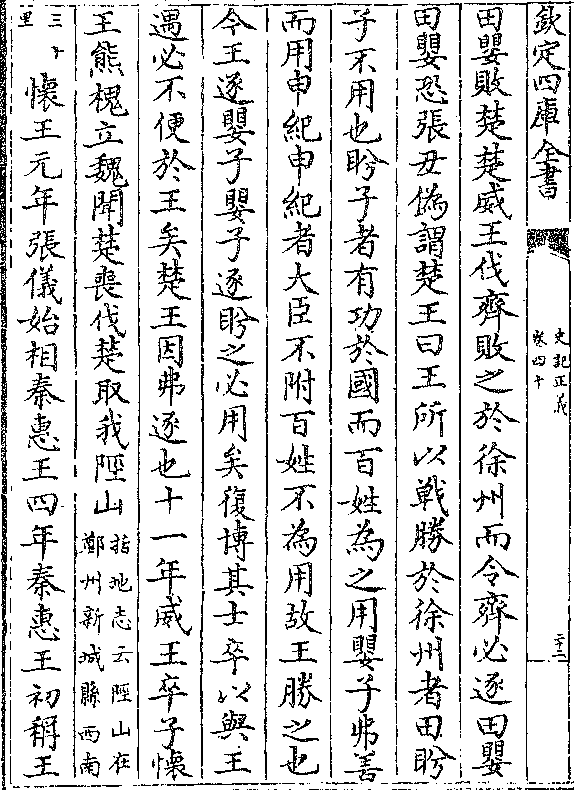 欽定四庫全書
史記正義
卷四十
三十二
田嬰敗楚楚威王伐齊敗之於徐州而令齊必逐田嬰
田嬰恐張丑偽謂楚王曰王所以戰勝於徐州者田盼
子不用也盼子者有功於國而百姓為之用嬰子弗善
而用申紀申紀者大臣不附百姓不為用故王勝之也
今王逐嬰子嬰子逐盼之必用矣復博其士卒以與王
遇必不便於王矣楚王因弗逐也十一年威王卒子懷
王熊槐立魏聞楚喪伐楚取我陘山括地志云陘山在
鄭州新城縣西南
三十
里
懷王元年張儀始相秦惠王四年秦惠王初稱王